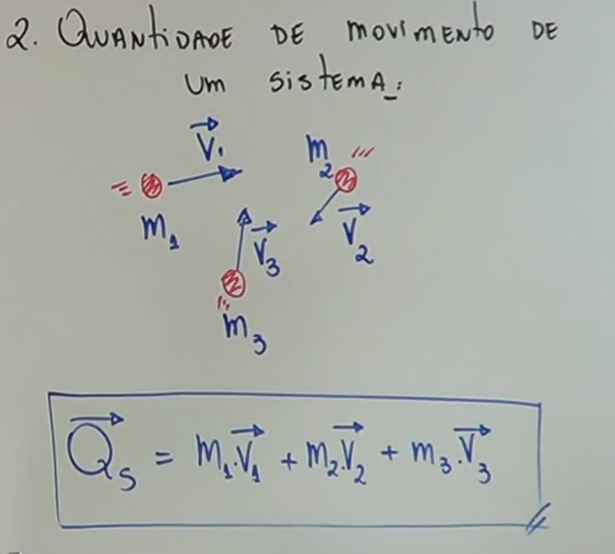 2. QUANTIDADE DE MOVIMENTO DE
UM SISTEMA:
V₁
m₂
m₁
V₂
V₃
m₃
Qₛ = m₁.V₁ + m₂.V₂ + m₃.V₃